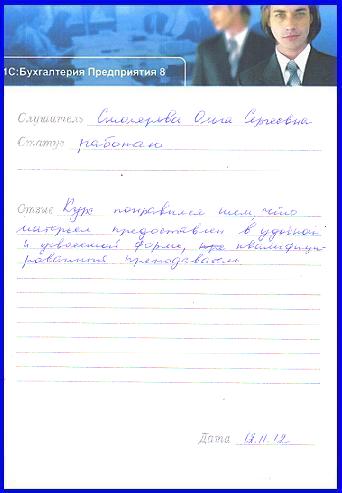 1С:Бухгалтерия Предприятия 8
Слушатель Ольга Сергеевна
Статус работаю
Отзыв Курс понравился тем, что
материал предоставлен в удобной
и усвоенной форме, квалифици-
рованный преподаватель
Дата 12